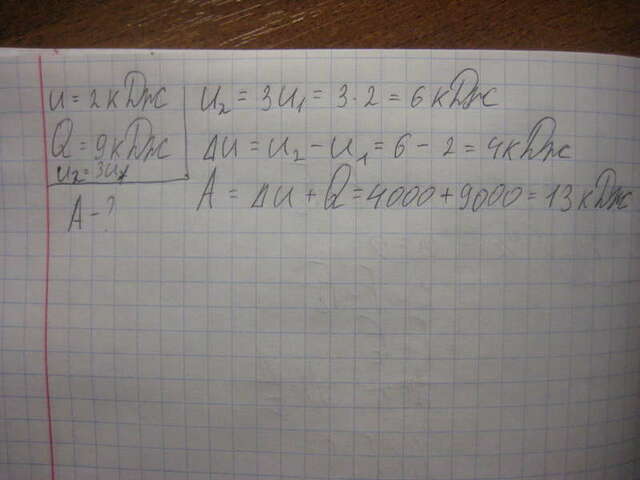 u = 2 кДж
Q = 9 кДж
u₂ = 3u₁
A - ?
u₂ = 3u₁ = 3 · 2 = 6 кДж
Δu = u₂ - u₁ = 6 - 2 = 4 кДж
A = Δu + Q = 4000 + 9000 = 13 кДж